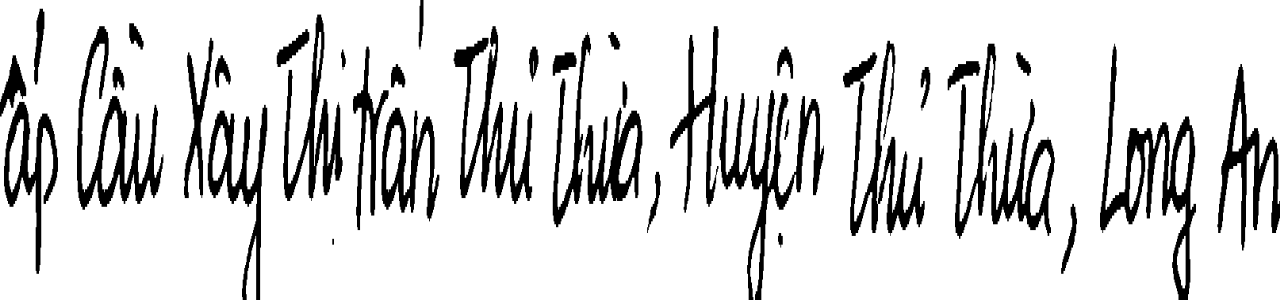 ấp Cầu Xây Thị trấn Thủ Thừa, Huyện Thủ Thừa, Long An